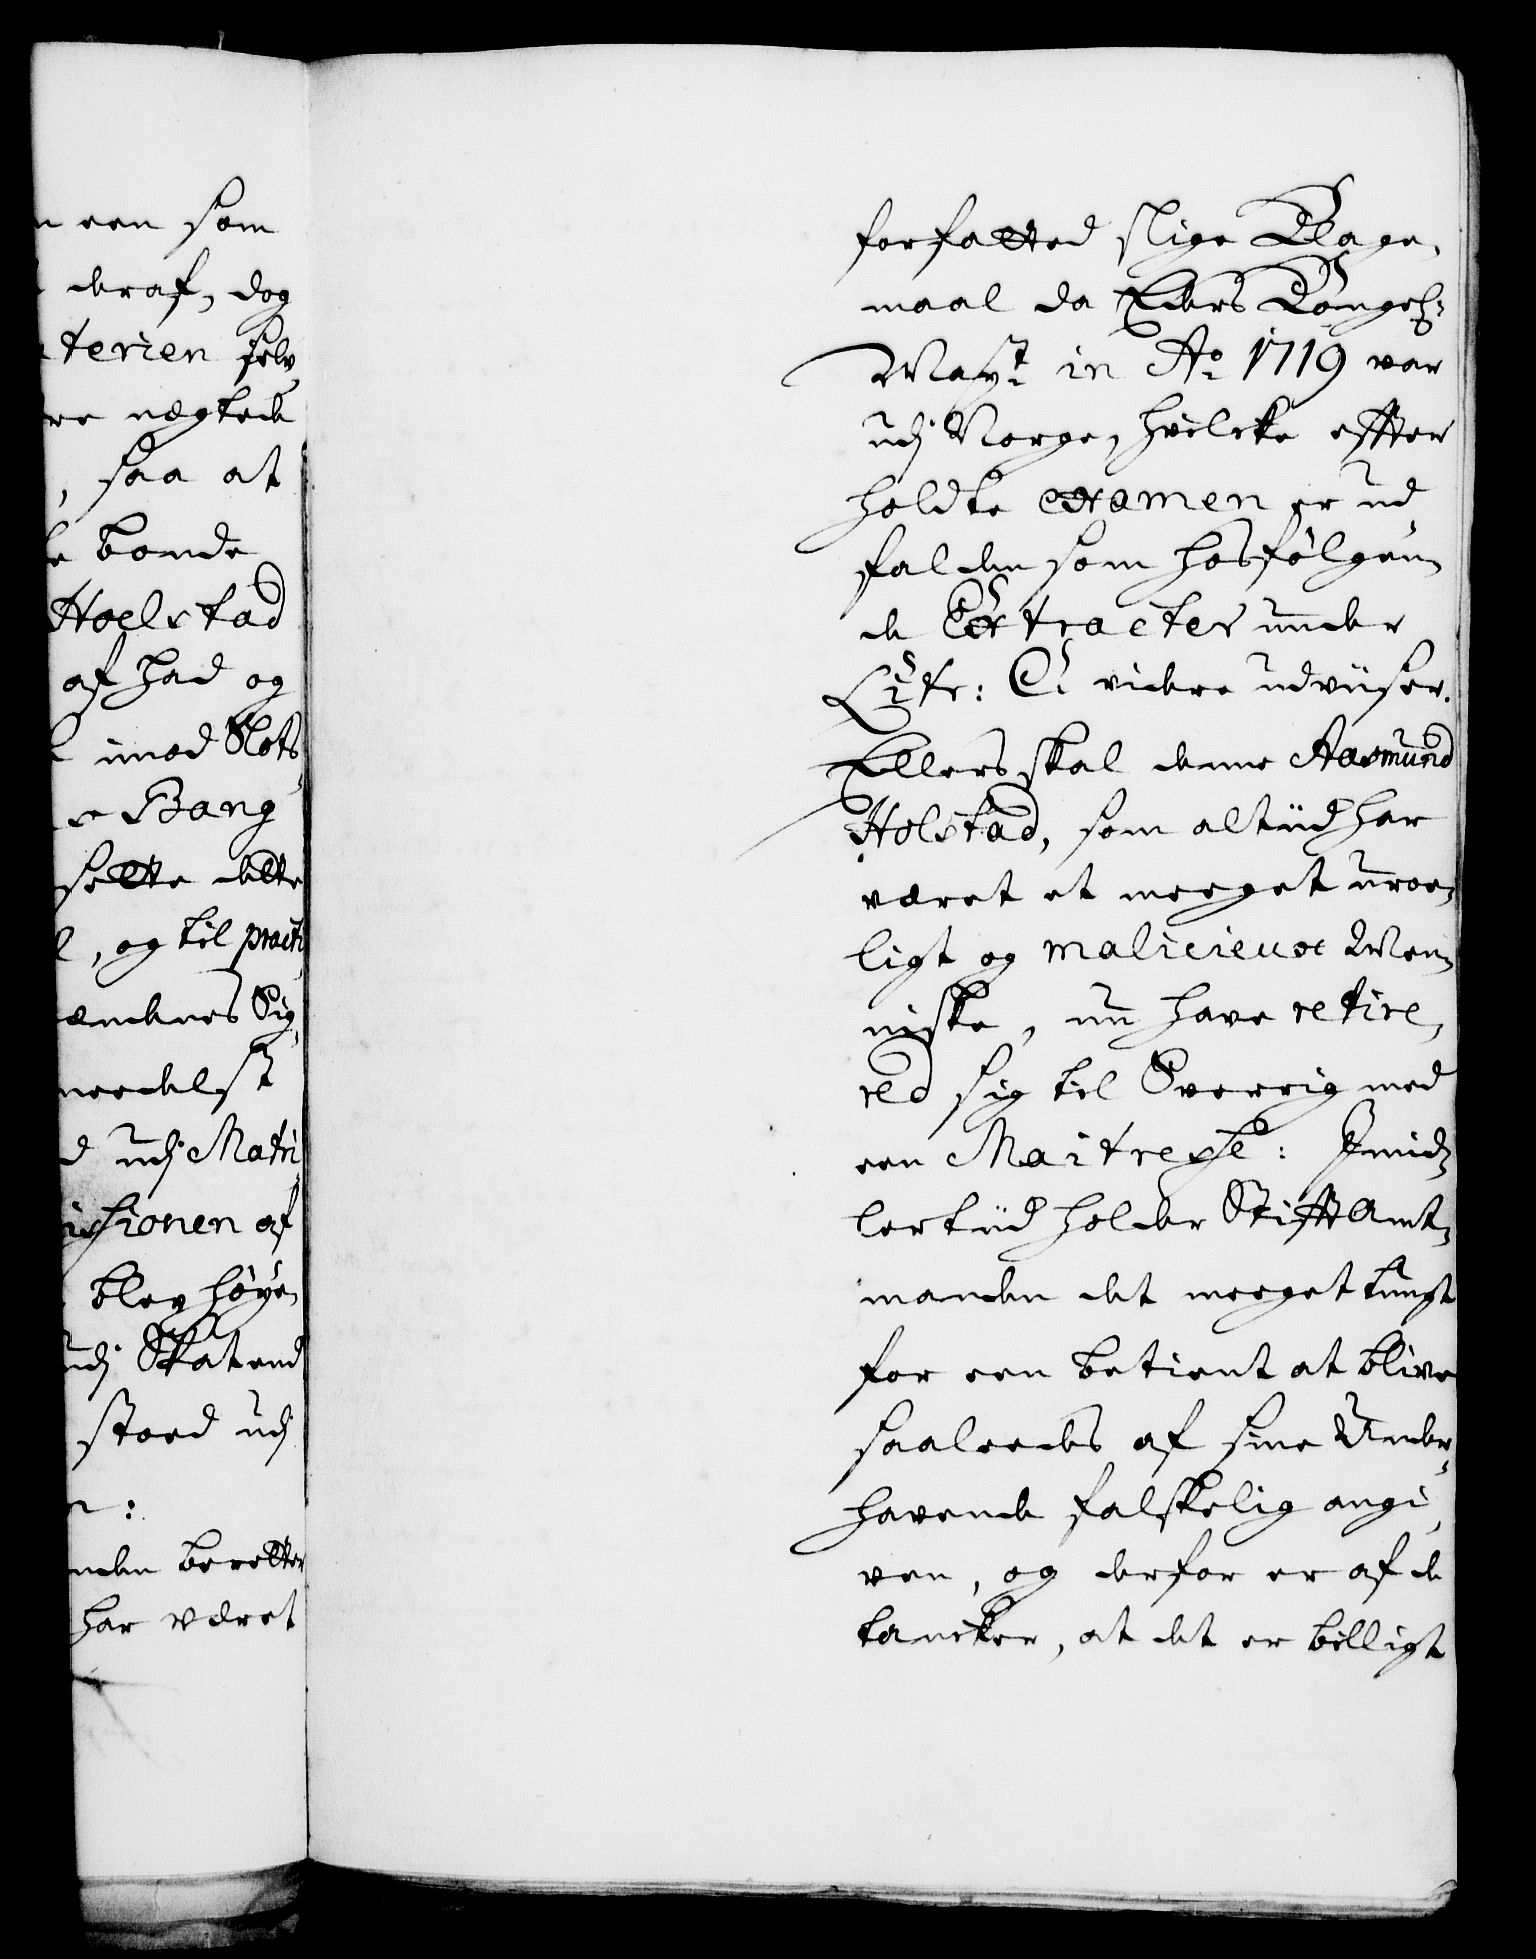 n een som
deraf, dog
terien selv
re nægtede
, saa at
bonde
Hoelstad
af had og
imod Slots
Bang
sette dette
, og til practi
ændenes Sig,
meedelst
d udj Matri
isionen af
blev høye,
udj Skatend
stoed udj
n:
nden beretter
har været
forfatted slige Klage,
maal da Eders Kongel:
Mayt: in Ao: 1719 var
udj Norge, hvilcke effter
holdte examen er ud
falden som hosfølgen,
de Extracter under
Litr: C. videre udviiser.
Ellers skal denne Aasmund
Holstad, som altiid har
været et meeget uroe,
ligt og malicieux Men,
niske, nu have retire,
red sig til Sverrig med
een Maitresse: Imid,
lertiid holder Stifftamt,
manden det meeget tungt
for een betient at blive
saaleedes af sine Under,
havende falskelig angi,
ven, og derfor er af de
tancker, at det er billigt